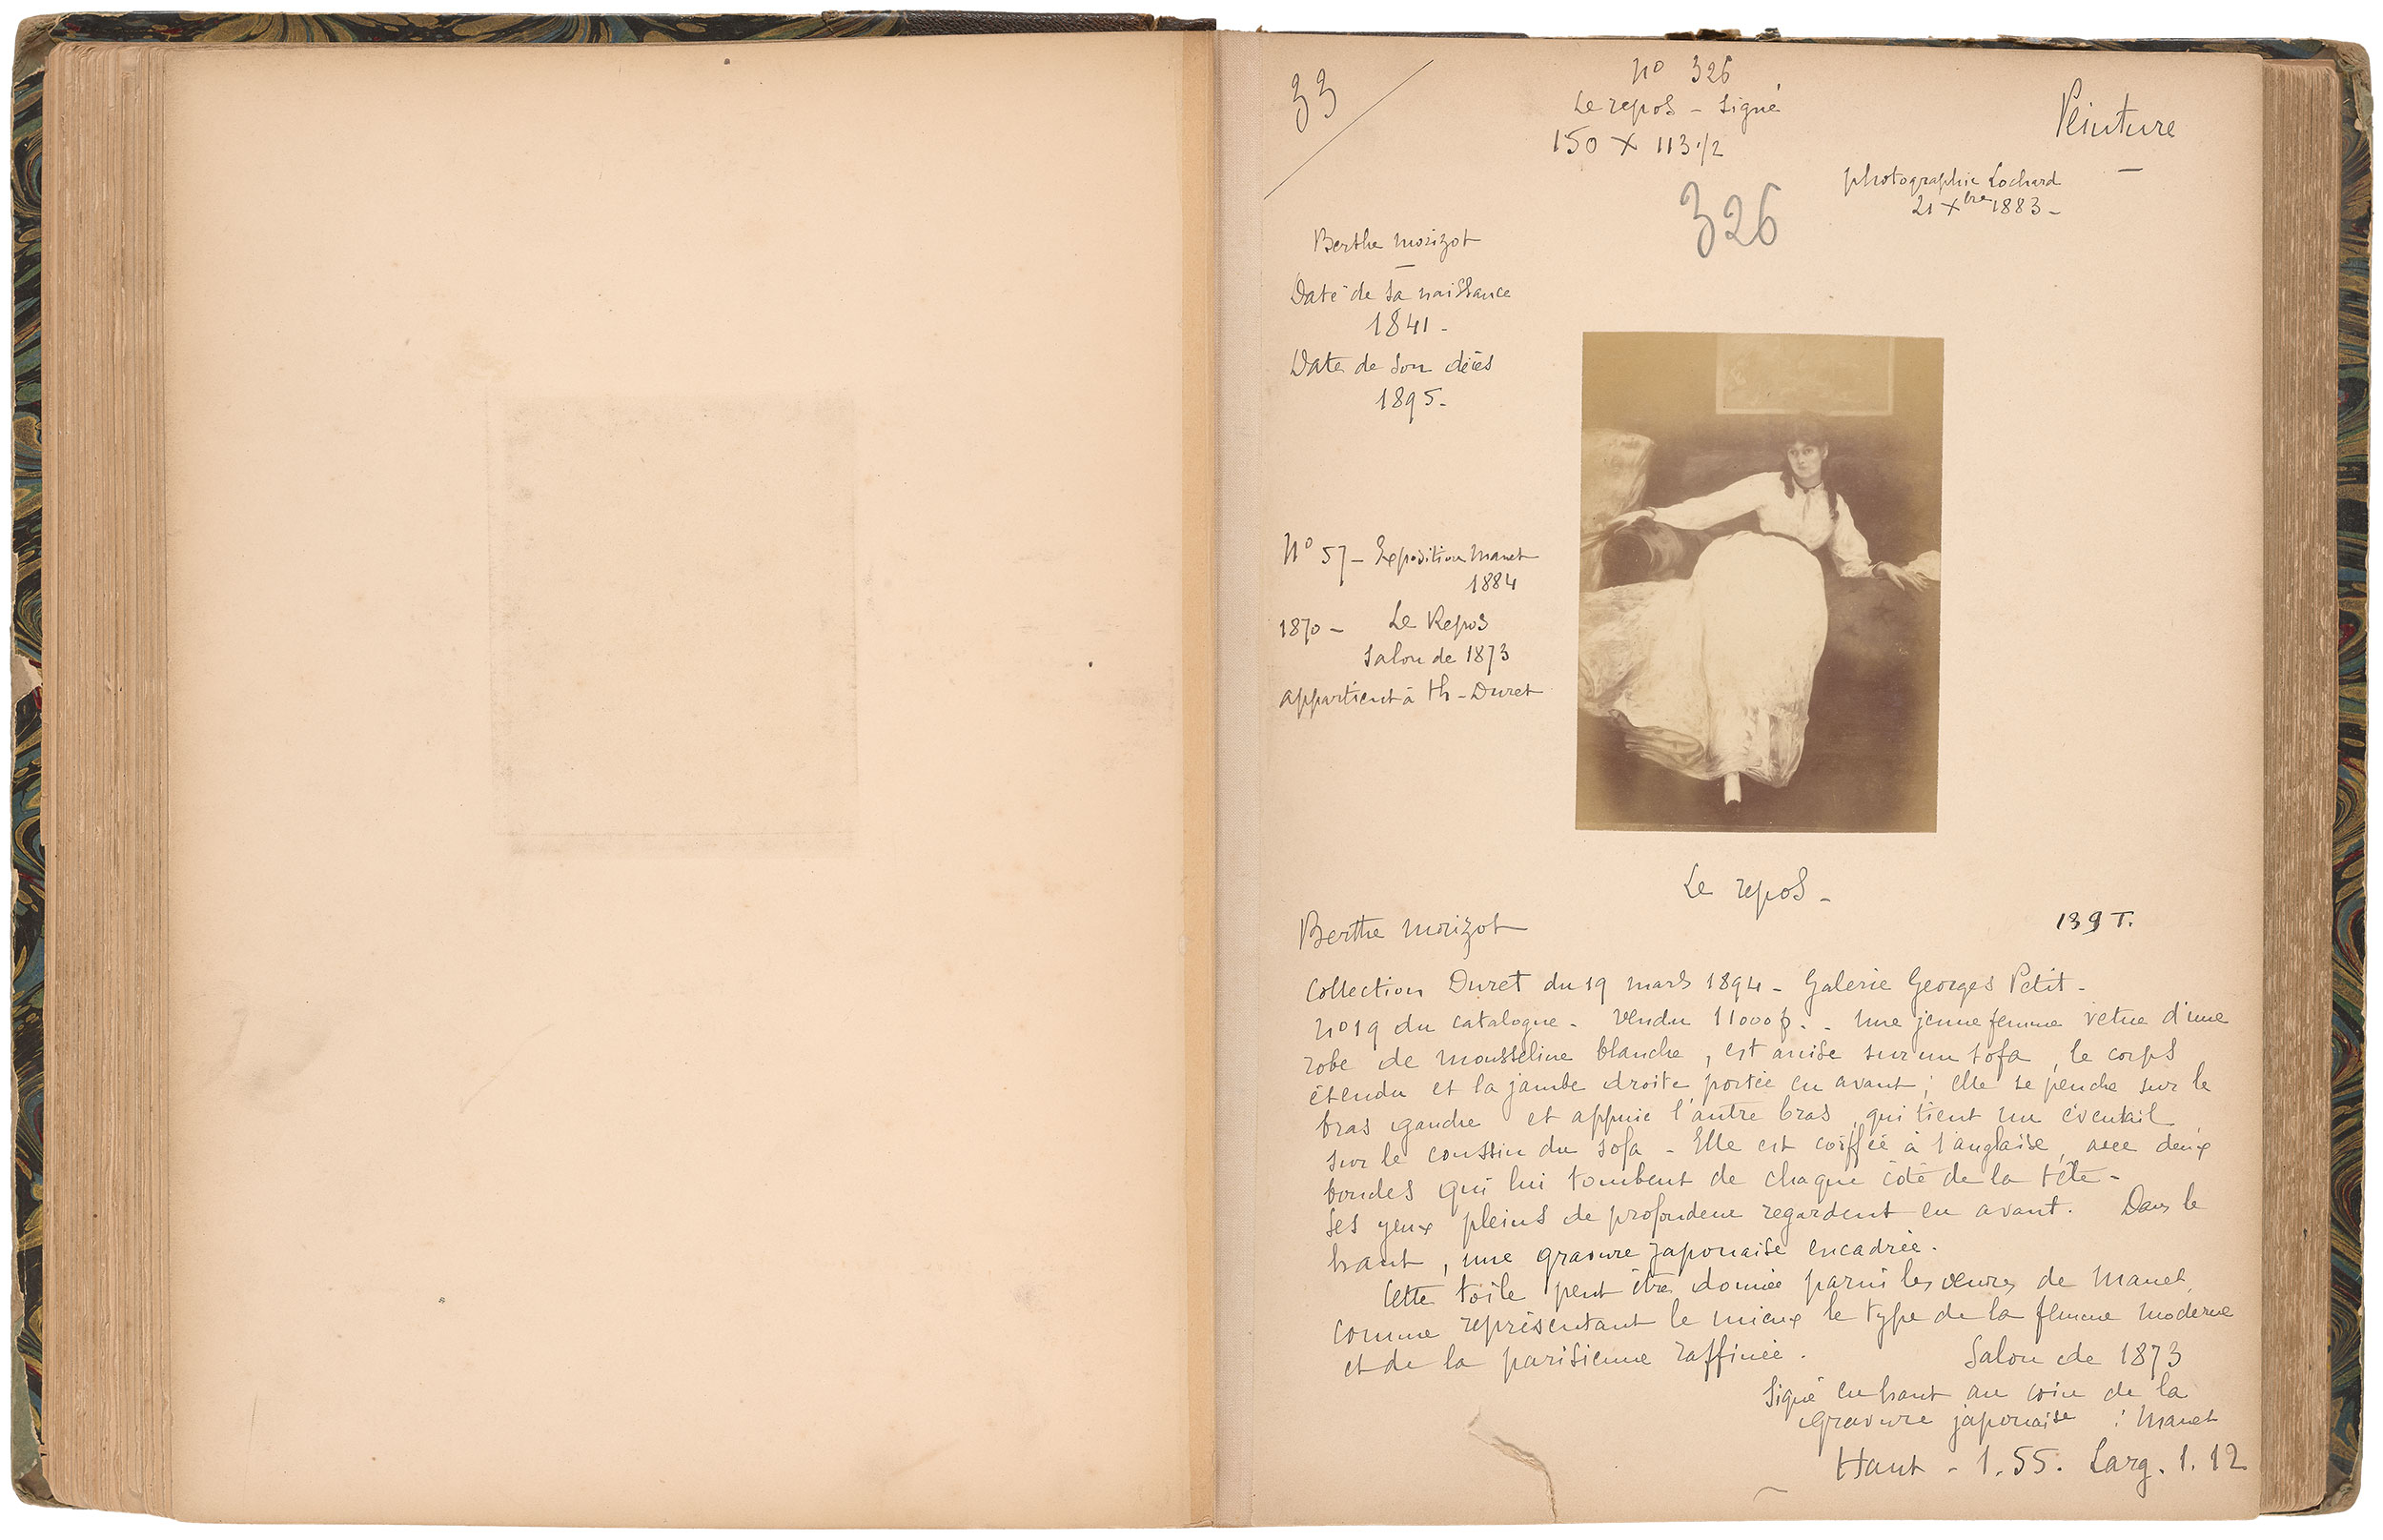 33
No 326
Le repos - Signé
150 X 113 1/2
326
Peinture
photographie Lochard
21 Xbre 1883 -
Berthe Morizot
Date de sa naissance
1841 -
Date de son décès
1895 -
No 57 - Exposition Manet
1884
1870 - Le Repos
Salon de 1873
appartient à Th - Duret
Le repos -
Berthe Morizot
139 T.
Collection Duret du 19 mars 1894 - Galerie Georges Petit -
No 19 du catalogue - Vendu 11000 f. - Une jeune femme vetue d'une
robe de mousseline blanche, est assise sur un sofa, le corps
étendu et la jambe droite portée en avant ; elle se penche sur le
bras gauche et appuie l'autre bras, qui tient un éventail
sur le coussin du sofa - Elle est coiffée à l'anglaise, avec deux
boucles qui lui tombent de chaque côté de la tête -
Ses yeux pleins de profondeur regardent en avant. Dans le
haut, une gravure japonaise encadrée.
Cette toile peut être donnée parmi les œuvres de Manet,
comme représentant le mieux le type de la femme moderne
et de la parisienne raffinée.
Salon de 1873
Signé en haut au coin de la
gravure japonaise : Manet
Haut - 1.55. Larg. 1.12